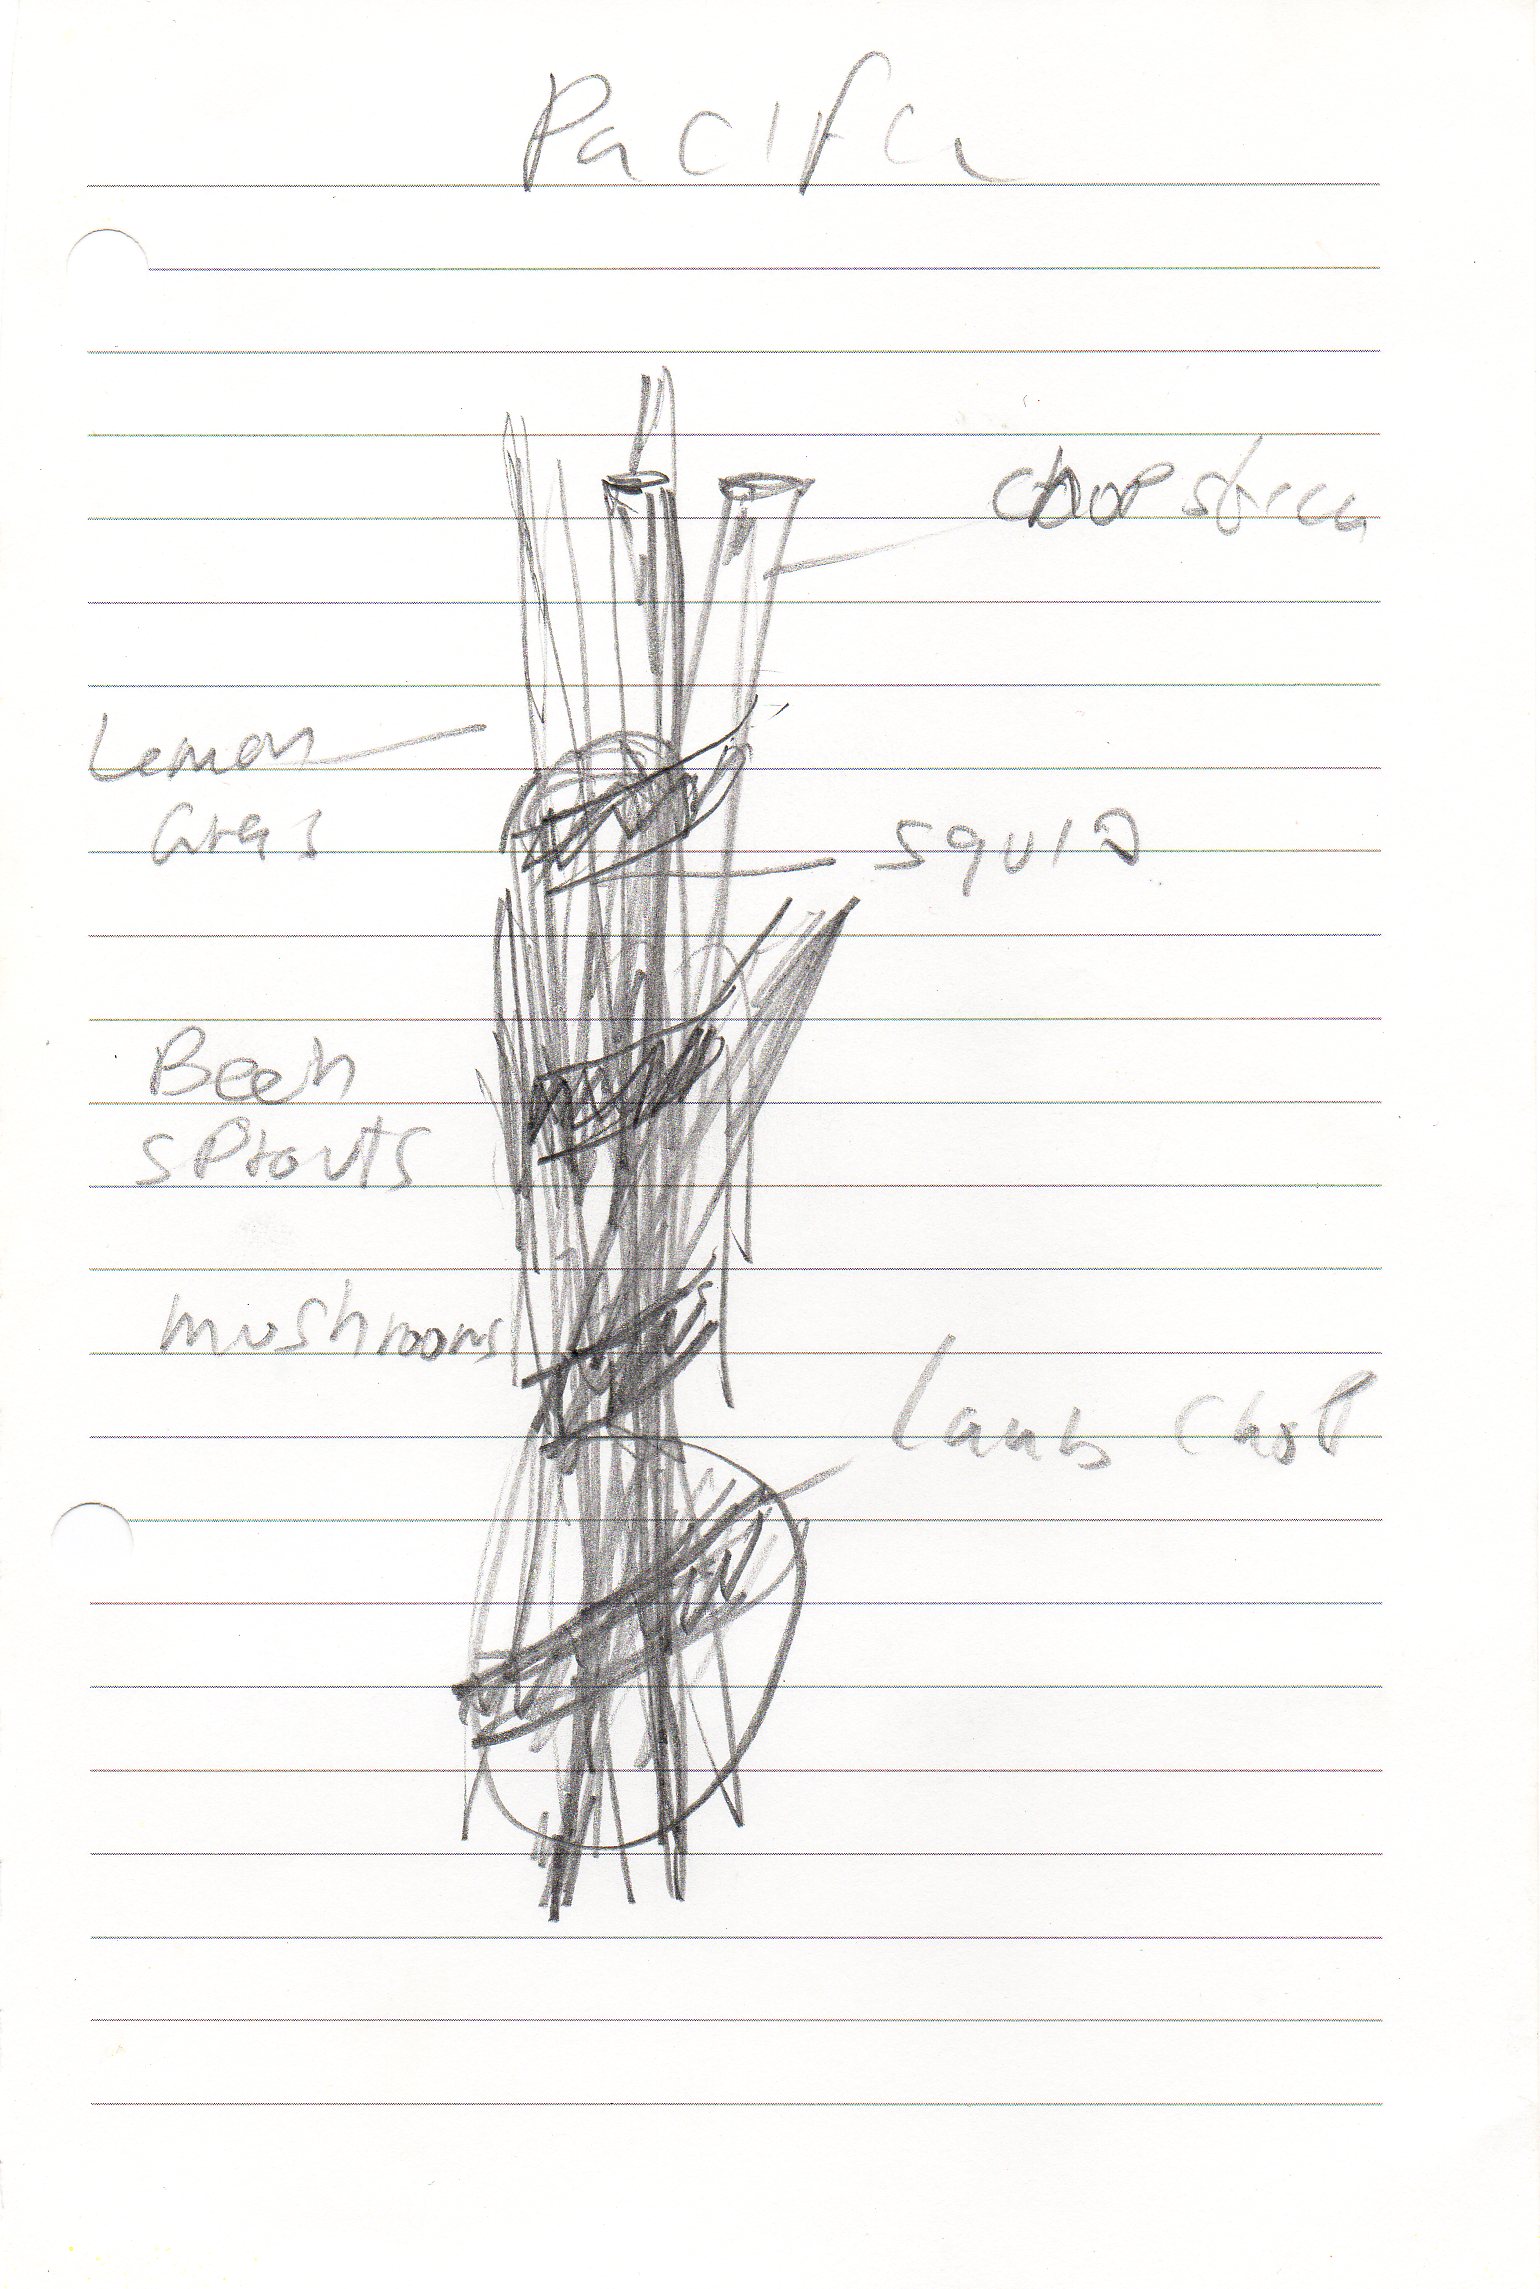 Pacific
chop stick
Lemon
Gras
squid
Been
sprouts
mushrooms
Lamb Chop